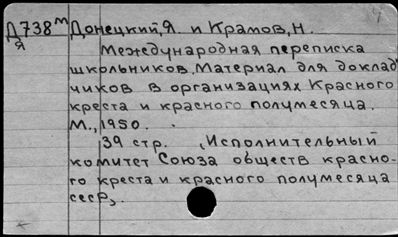 Д738м Донецкий, Я. и Крамов, Н.
Я
Международная переписка
школьников. Материал для доклад-
чиков в организациях Красного
креста и красного полумесяца.
М., 1950.
39 стр. (Исполнительный
комитет Союза обществ красно-
го креста и красного полумесяца
СССР).